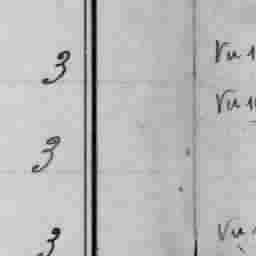 3 Vu
Vu
3
3 Vu